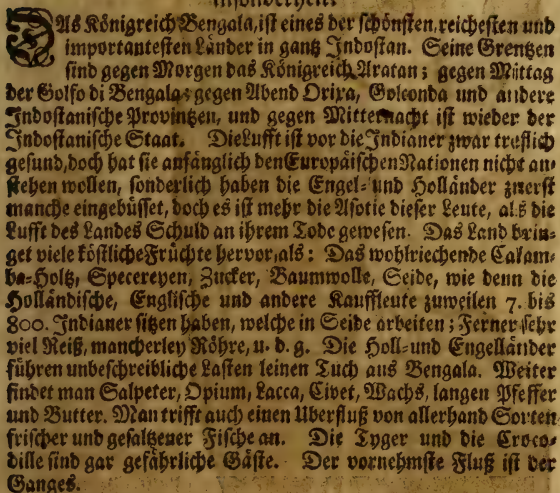 insonderheit
DAs Königreich Bengala, ist eines der schönsten, reichesten und
importantesten Länder in gantz Indostan. Seine Grentzen
sind gegen Morgen das Königreich Aratan; gegen Mittag
der Golfo di Bengala; gegen Abend Orixa, Golconda und andere
Indostanische Provintzen, und gegen Mitternacht ist wieder der
Indostanische Staat. Die Lufft ist vor die Indianer zwar treflich
gesund, doch hat sie anfänglich den Europäischen Nationen nicht an-
stehen wollen, sonderlich haben die Engel- und Holländer zuerst
manche eingebüsset, doch es ist mehr die Asotie dieser Leute, als die
Lufft des Landes Schuld an ihrem Tode gewesen. Das Land brin-
get viele köstliche Früchte hervor, als: Das wohlriechende Calam-
ba-Holtz, Specereyen, Zucker, Baumwolle, Seide, wie denn die
Holländische, Englische und andere Kauffleute zuweilen 7. bis
800. Indianer sitzen haben, welche in Seide arbeiten; Ferner sehr
viel Reiß, mancherley Röhre, u. d. g. Die Holl- und Engelländer
führen unbeschreibliche Lasten leinen Tuch aus Bengala. Weiter
findet man Salpeter, Opium, Lacca, Civet, Wachs, langen Pfeffer
und Butter. Man trifft auch einen Uberfluß von allerhand Sorten
frischer und gesaltzener Fische an. Die Tyger und die Croco-
dille sind gar gefährliche Gäste. Der vornehmste Fluß ist der
Ganges.